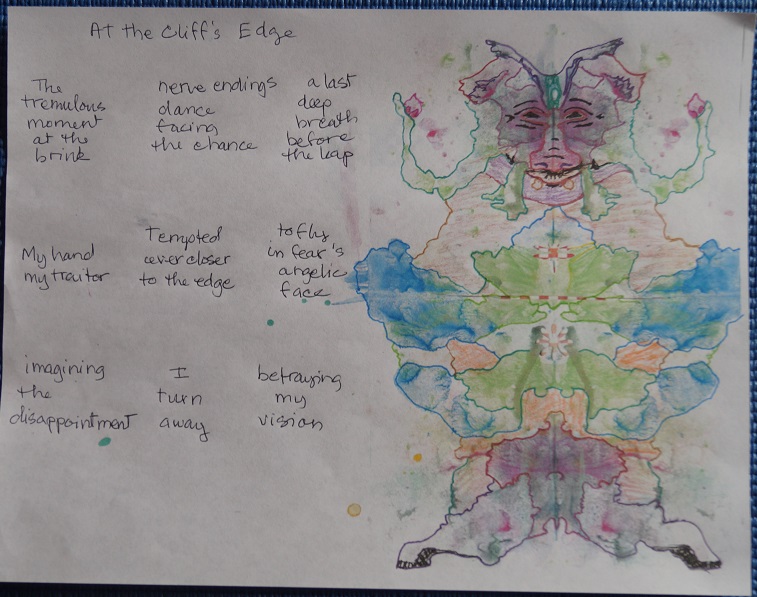 At the Cliff's Edge
The
tremulous
moment
at the
brink
nerve endings
dance
facing
the chance
a last
deep
breath
before
the leap
My hand
my traitor
Tempted
ever closer
to the edge
to fly
in fear's
angelic
face
imagining
the
disappointment
I
turn
away
betraying
my
vision